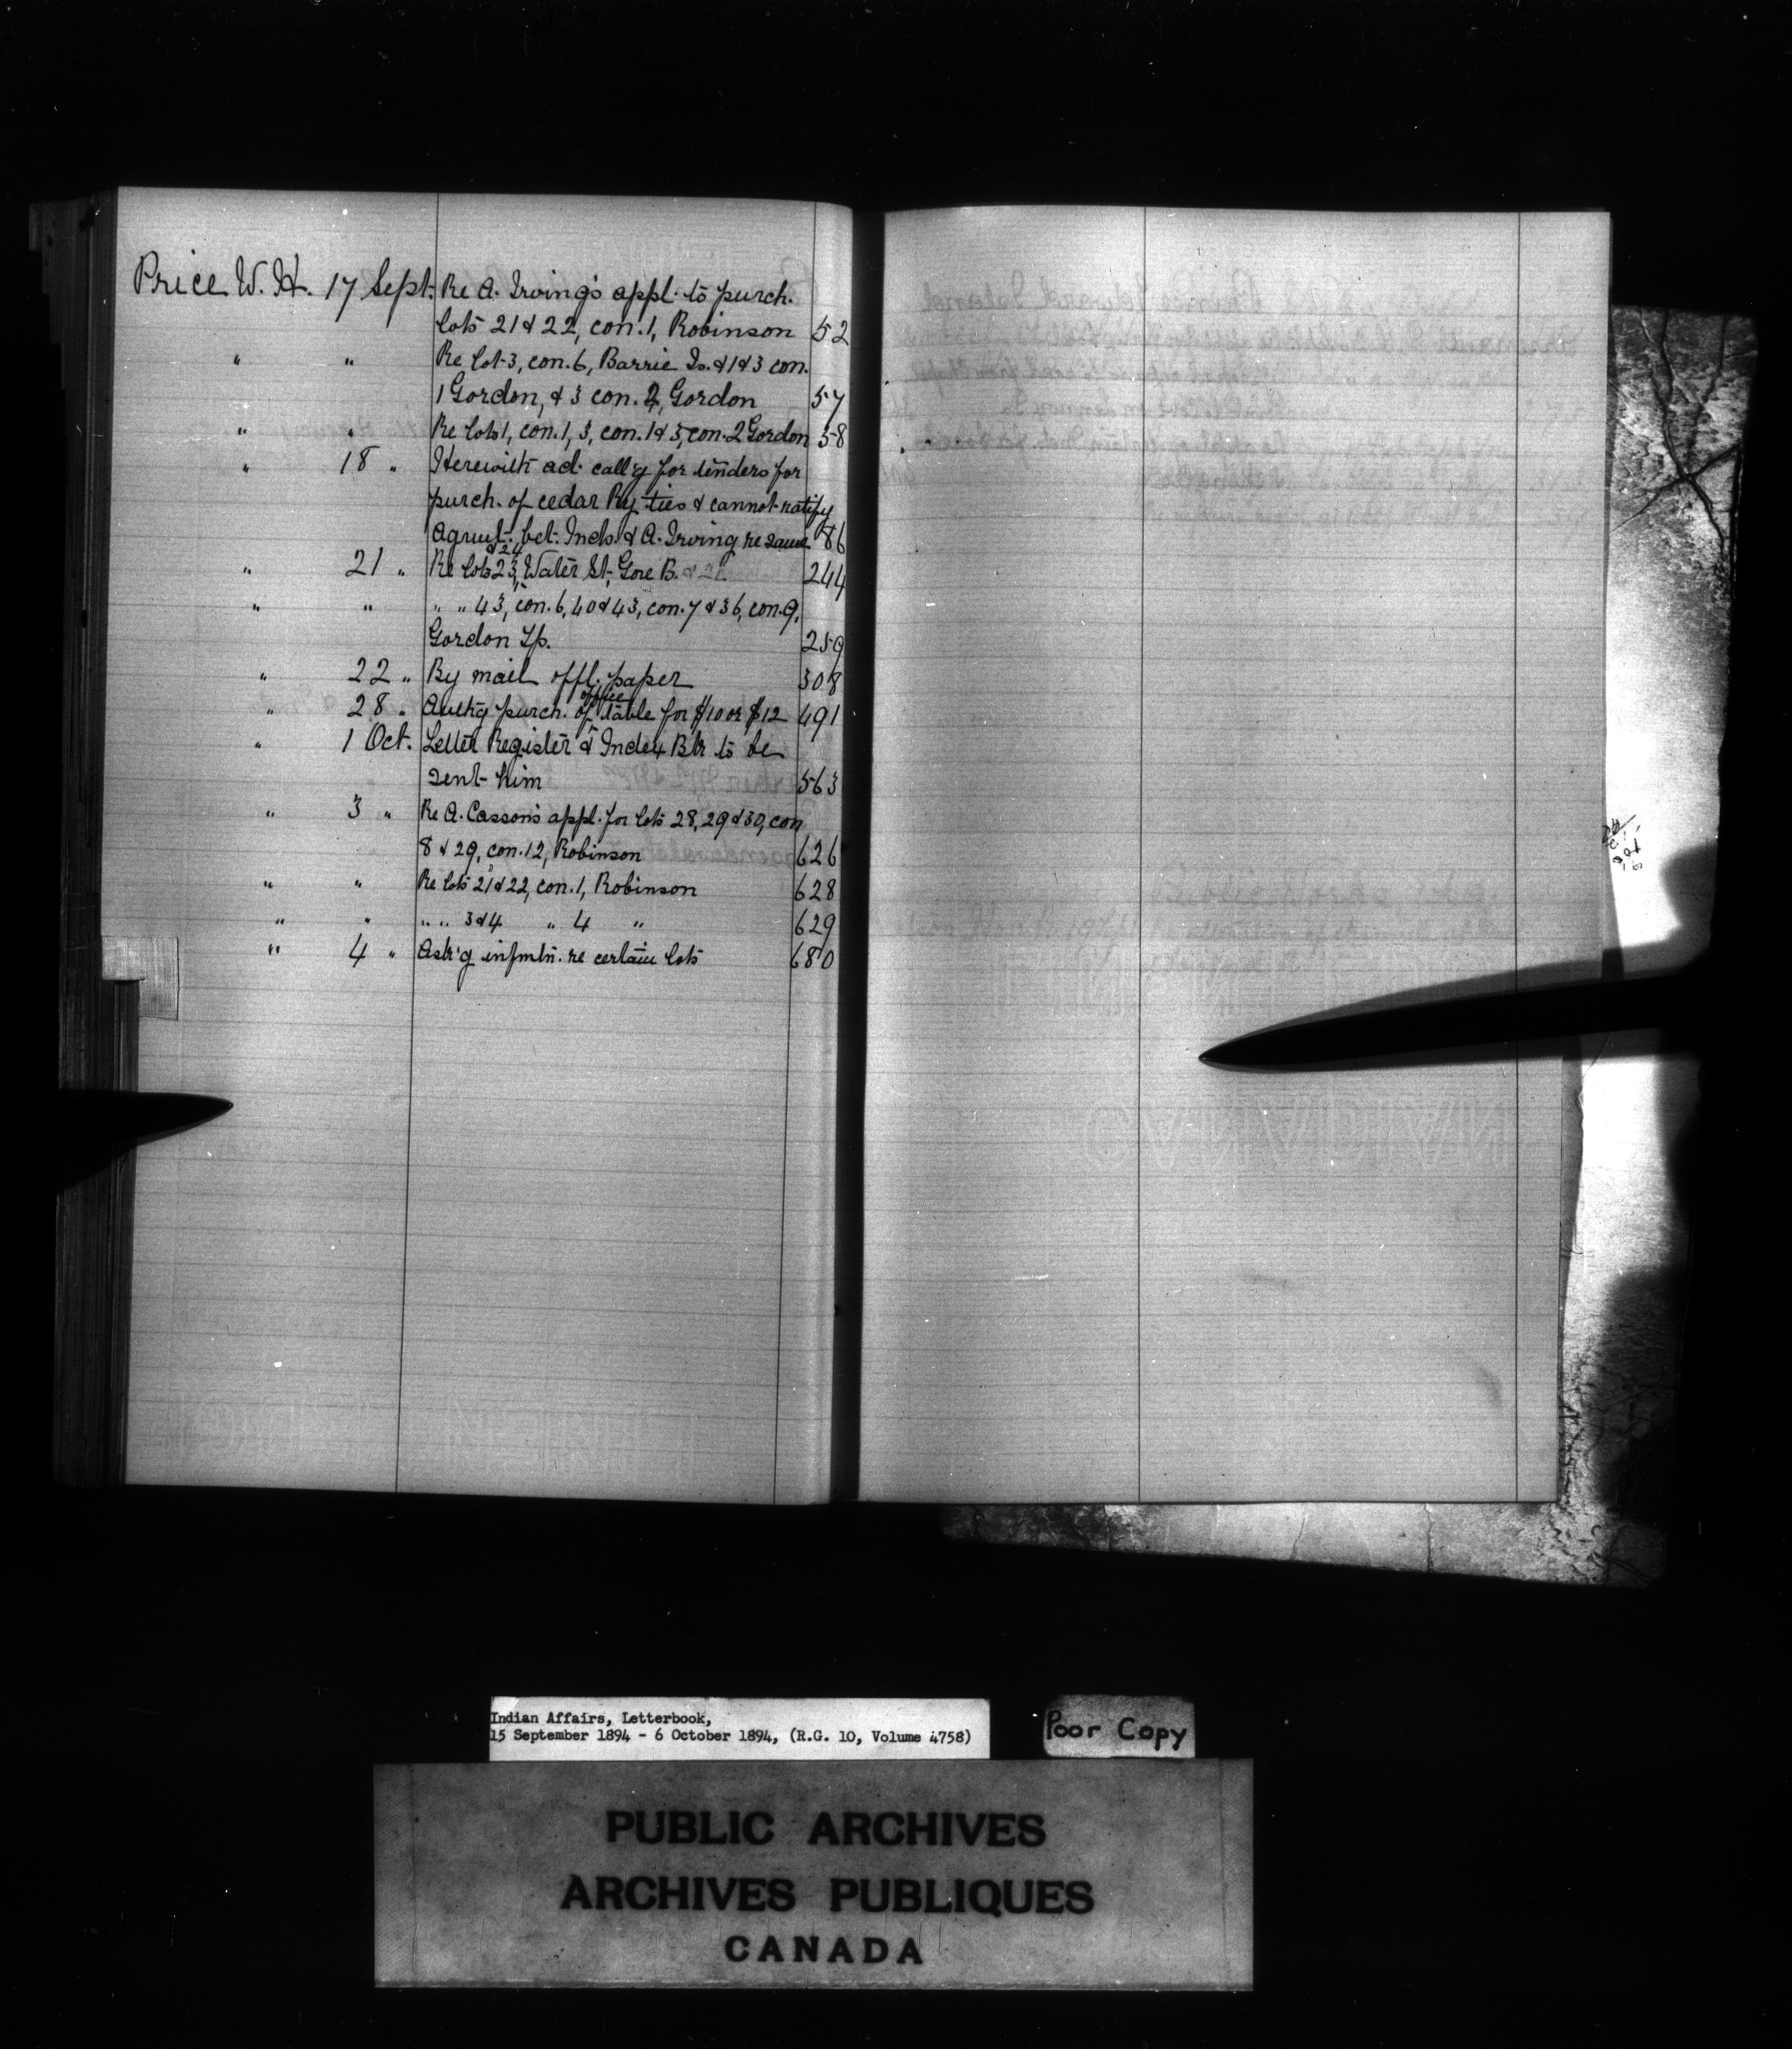 Price W. H. 17 Sept. Re A. Irving's appl. to purch.
lots 21 & 22, con. 1, Robinson 52
" " Re lot 3, con. 6, Barrie Is. & 1 & 3 con.
1 Gordon, & 3 con. 2, Gordon 57
" " Re lots 1, con. 1, 3, con. 1 & 3, con. 2 Gordon 58
" 18 " Herewith ad. call'g for tenders for
purch. of cedar Ry. ties & cannot ratify
Agrmt. bet. Inds. & A. Irving re same 86
& 24
" 21 " Re lots 23, Water St., Gore B. 244
" " " " 43, con. 6, 40 & 43, con. 7 & 36, con. 9,
Gordon Tp. 259
" 22 " By mail offl. paper 308
office
" 28 " Auth'g purch. of table for $10 or $12 491
" 1 Oct. Letter Register & Index Bk to be
sent him 563
" 3 " Re A. Casson's appl. for lots 28, 29 & 30, con
8 & 29, con. 12, Robinson 626
" " Re lots 21 & 22, con. 1, Robinson 628
" " " " 3 & 4 " 4 " 629
" 4 " Ask'g infmtn. re certain lots 680
Indian Affairs, Letterbook,
15 September 1894 - 6 October 1894, (R.G. 10, Volume 4758)
Poor Copy
PUBLIC ARCHIVES
ARCHIVES PUBLIQUES
CANADA